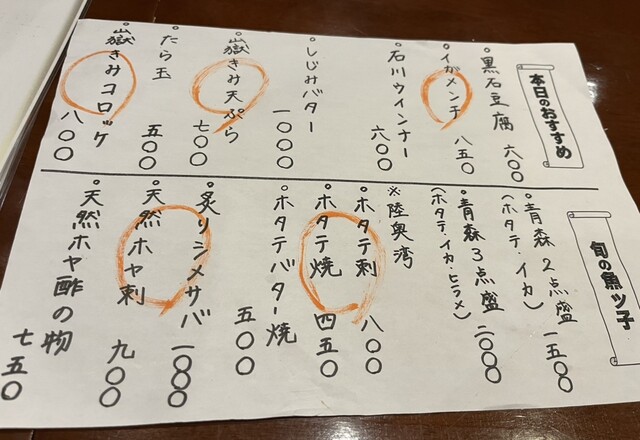 本日のおすすめ
°黒石豆腐 六〇〇
°イガメンチ 八五〇
°石川ウインナー 六〇〇
°しじみバター 一〇〇〇
°嶽きみ天ぷら 七〇〇
°たら玉 五〇〇
°嶽きみコロッケ 八〇〇
旬の魚ッ子
°青森2点盛 一五〇〇
(ホタテ・イカ)
°青森3点盛 二〇〇〇
(ホタテ・イカ・ヒラメ)
※陸奥湾
°ホタテ刺 八〇〇
°ホタテ焼 四五〇
°ホタテバター焼 五〇〇
°炙りシメサバ 一〇〇〇
°天然ホヤ刺 九〇〇
°天然ホヤ酢の物 七五〇